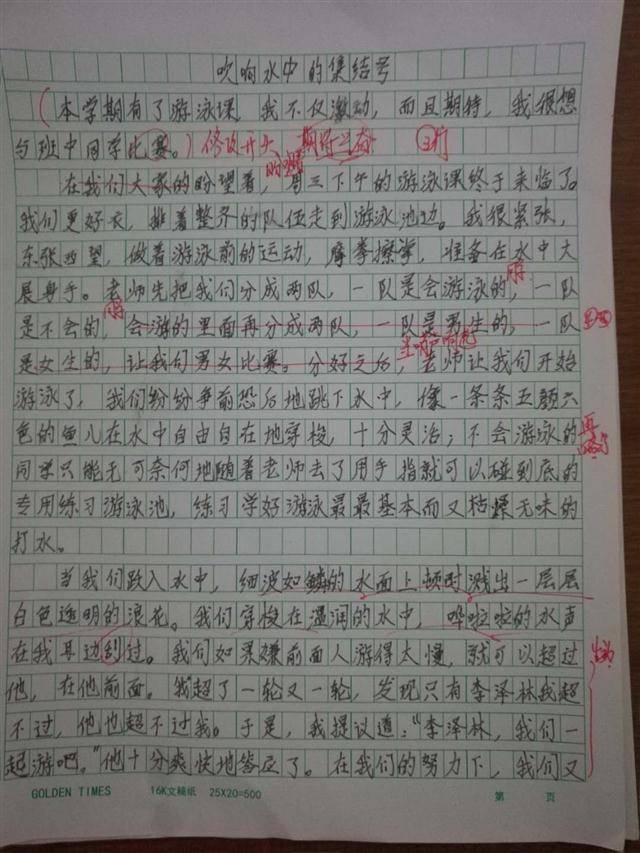 吹响水中的集结号
（本学期有了游泳课，我不仅激动，而且期待，我很想
与班中同学比赛。）修改开头 期待兴奋
的
在我们大家的盼望着，周三下午的游泳课终于来临了。
我们更好衣，排着整齐的队伍走到游泳池边。我很紧张，
东张西望，做着游泳前的运动，摩拳擦掌，准备在水中大
展身手。老师先把我们分成两队，一队是会游泳的，一队
是不会的，会游的里面再分成两队，一队是男生的，一队
是女生的，让我们男女比赛。分好之后，老师让我们开始
游泳了，我们纷纷争前恐后地跳下水中，像一条条五颜六
色的鱼儿在水中自由自在地穿梭，十分灵活；不会游泳的
同学只能无可奈何地随着老师去了用手指就可以碰到底的
专用练习游泳池，练习学好游泳最最基本而又枯燥无味的
打水。
当我们跃入水中，细波如鳞的水面上顿时溅出一层层
白色透明的浪花。我们穿梭在湿润的水中，哗啦啦的水声
在我耳边刮过。我们如果嫌前面人游得太慢，就可以超过
他，在他前面。我超了一轮又一轮，发现只有李泽林我超
不过，他也超不过我。于是，我提议道：“李泽林，我们一
起游吧。”他十分爽快地答应了。在我们的努力下，我们又
GOLDEN TIMES 16K文稿纸 25X20=500 第 页